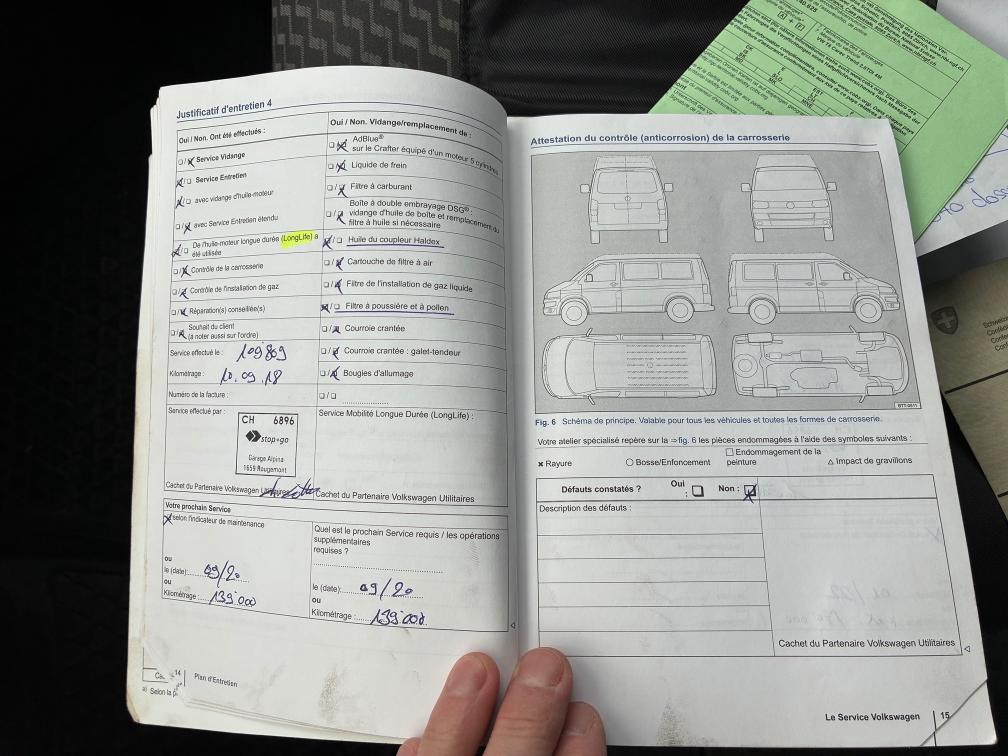 Justificatif d'entretien 4
Oui / Non. Ont été effectués :
Service Vidange
Service Entretien
avec vidange d'huile-moteur
avec Service Entretien étendu
De l'huile-moteur longue durée (LongLife) a
été utilisée
Contrôle de la carrosserie
Contrôle de l'installation de gaz
Réparation(s) conseillée(s)
Souhait du client
(à noter aussi sur l'ordre)
Service effectué le : 109809
Kilométrage : 10.09.18
Numéro de la facture :
Service effectué par :
CH 6896
stop+go
Garage Alpina
1659 Rougemont
Cachet du Partenaire Volkswagen Utilitaires
Oui / Non. Vidange/remplacement de :
AdBlue®
sur le Crafter équipé d'un moteur 5 cylindres
Liquide de frein
Filtre à carburant
Boîte à double embrayage DSG® :
vidange d'huile de boîte et remplacement du
filtre à huile si nécessaire
Huile du coupleur Haldex
Cartouche de filtre à air
Filtre de l'installation de gaz liquide
Filtre à poussière et à pollen
Courroie crantée
Courroie crantée : galet-tendeur
Bougies d'allumage
Service Mobilité Longue Durée (LongLife) :
Cachet du Partenaire Volkswagen Utilitaires
Votre prochain Service
selon l'indicateur de maintenance
ou
le (date): 09/20
ou
Kilométrage : 139'000
Quel est le prochain Service requis / les opérations
supplémentaires
requises ?
le (date): 09/20
ou
Kilométrage : 139'000
14 Plan d'Entretien
Selon la
Attestation du contrôle (anticorrosion) de la carrosserie
BTT-0511
Fig. 6 Schéma de principe. Valable pour tous les véhicules et toutes les formes de carrosserie.
Votre atelier spécialisé repère sur la ⇨ fig. 6 les pièces endommagées à l'aide des symboles suivants :
× Rayure
○ Bosse/Enfoncement
□ Endommagement de la
peinture
△ Impact de gravillons
Défauts constatés ? Oui : Non :
Description des défauts :
Cachet du Partenaire Volkswagen Utilitaires
Le Service Volkswagen 15